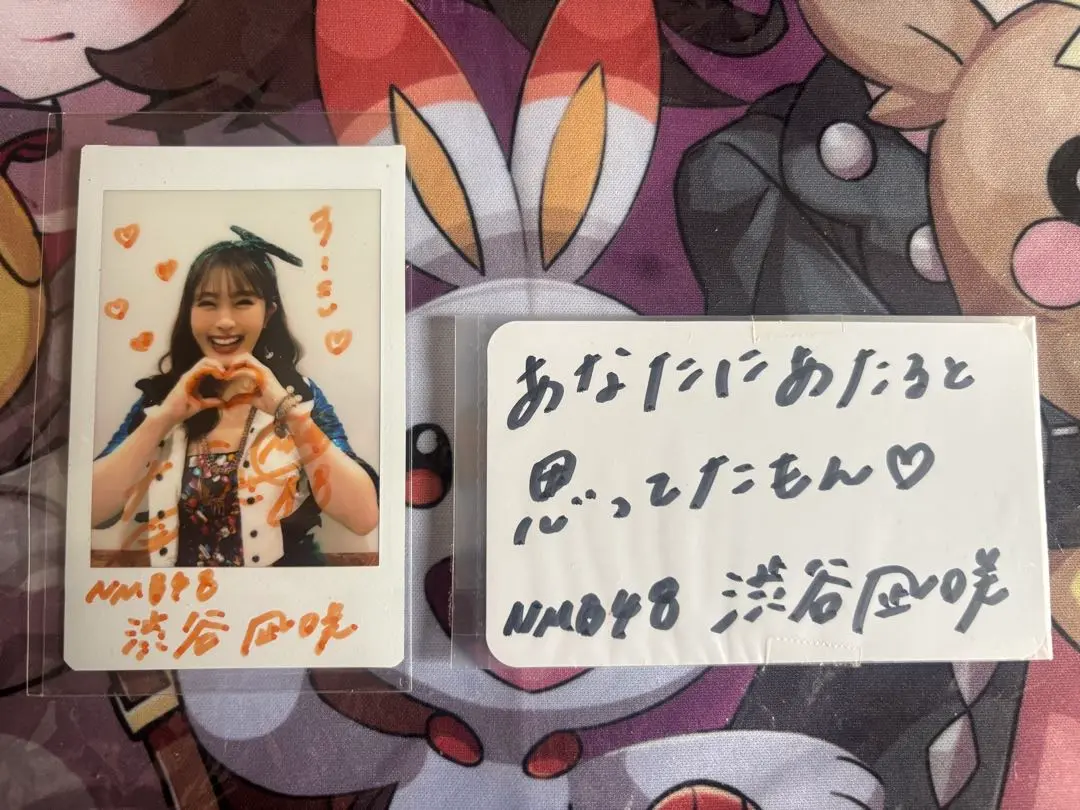 NMB48
渋谷凪咲
あなたにあたると
思ってたもん♡
NMB48 渋谷凪咲